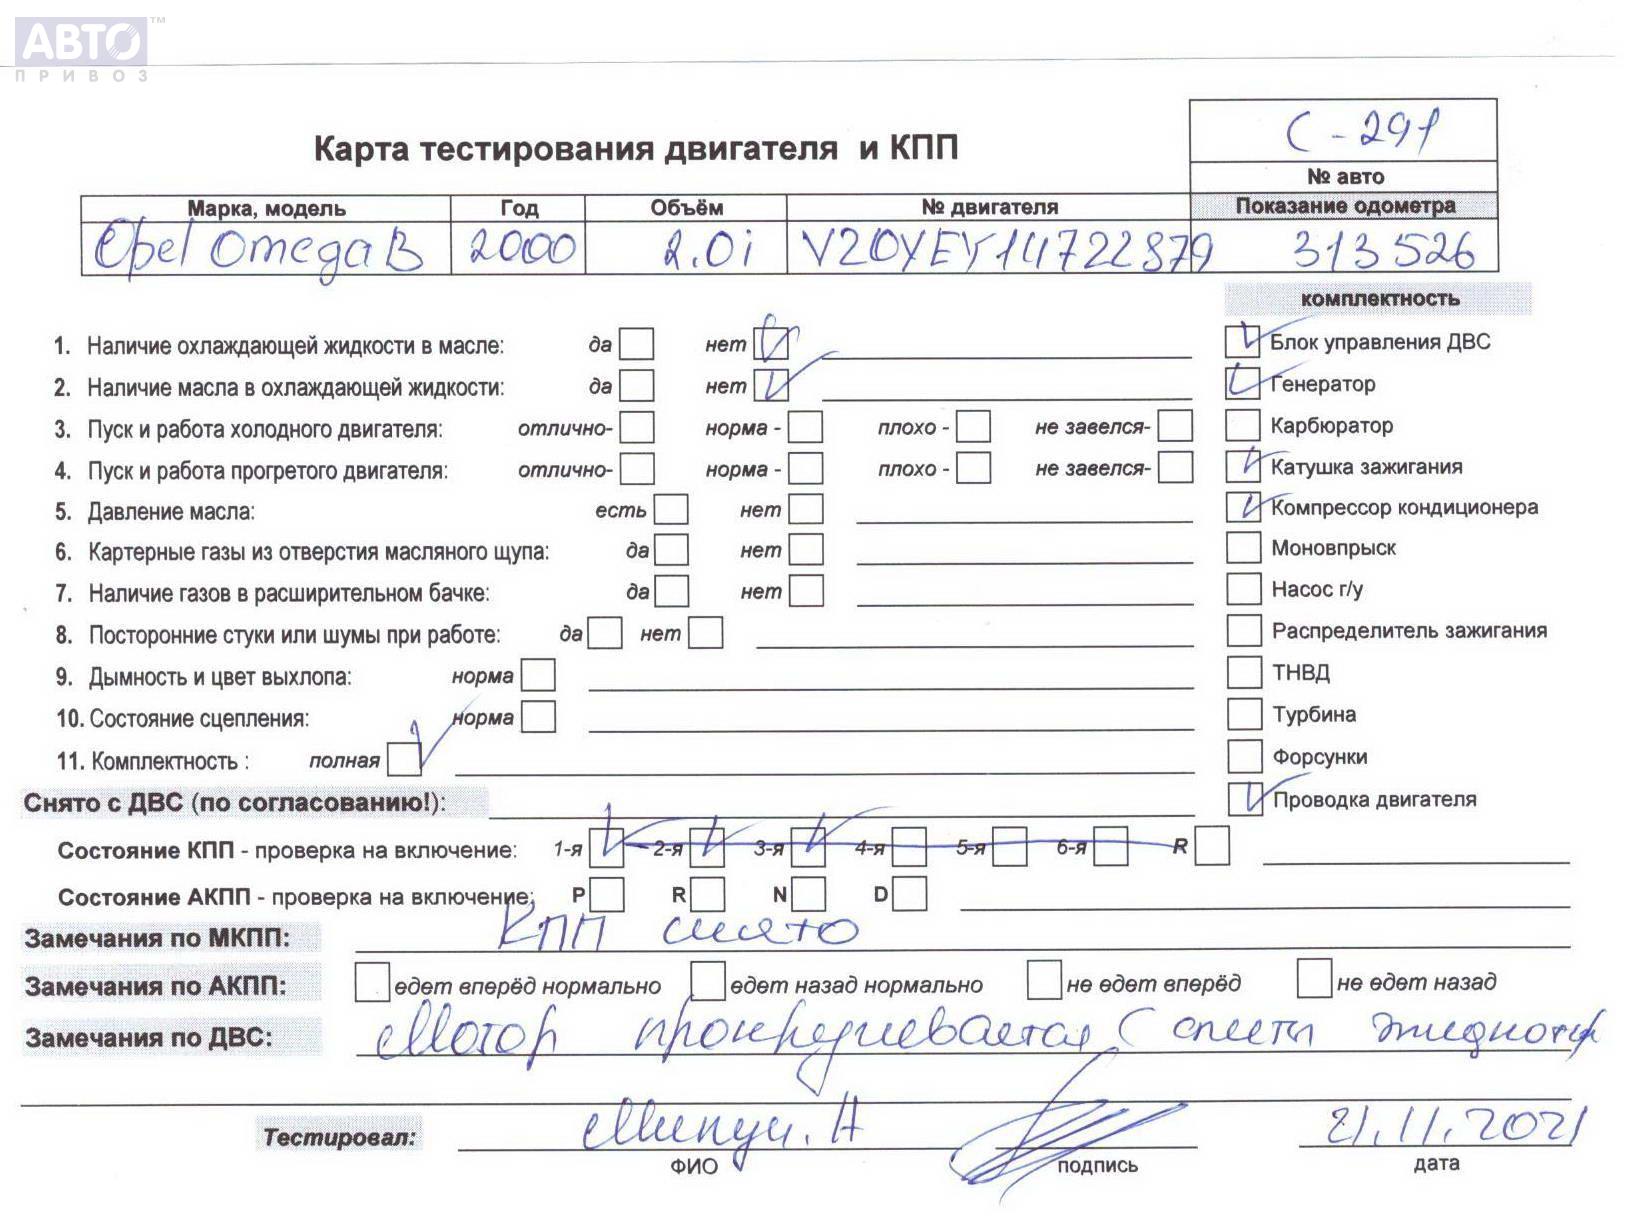 АВТО™
ПРИВОЗ
C-291
Карта тестирования двигателя и КПП
№ авто
Марка, модель Год Объём № двигателя Показание одометра
Opel Omega B 2000 2.0i V20YEY14722879 313526
комплектность
1. Наличие охлаждающей жидкости в масле: да нет Блок управления ДВС
2. Наличие масла в охлаждающей жидкости: да нет Генератор
3. Пуск и работа холодного двигателя: отлично- норма - плохо - не завелся- Карбюратор
4. Пуск и работа прогретого двигателя: отлично- норма - плохо - не завелся- Катушка зажигания
5. Давление масла: есть нет Компрессор кондиционера
6. Картерные газы из отверстия масляного щупа: да нет Моновпрыск
7. Наличие газов в расширительном бачке: да нет Насос г/у
8. Посторонние стуки или шумы при работе: да нет Распределитель зажигания
9. Дымность и цвет выхлопа: норма ТНВД
10. Состояние сцепления: норма Турбина
11. Комплектность : полная Форсунки
Снято с ДВС (по согласованию!): Проводка двигателя
Состояние КПП - проверка на включение: 1-я 2-я 3-я 4-я 5-я 6-я R
Состояние АКПП - проверка на включение: P R N D
Замечания по МКПП: КПП снято
Замечания по АКПП: едет вперёд нормально едет назад нормально не едет вперёд не едет назад
Замечания по ДВС: Мотор (
Тестировал: А 21.11.2021
ФИО подпись дата